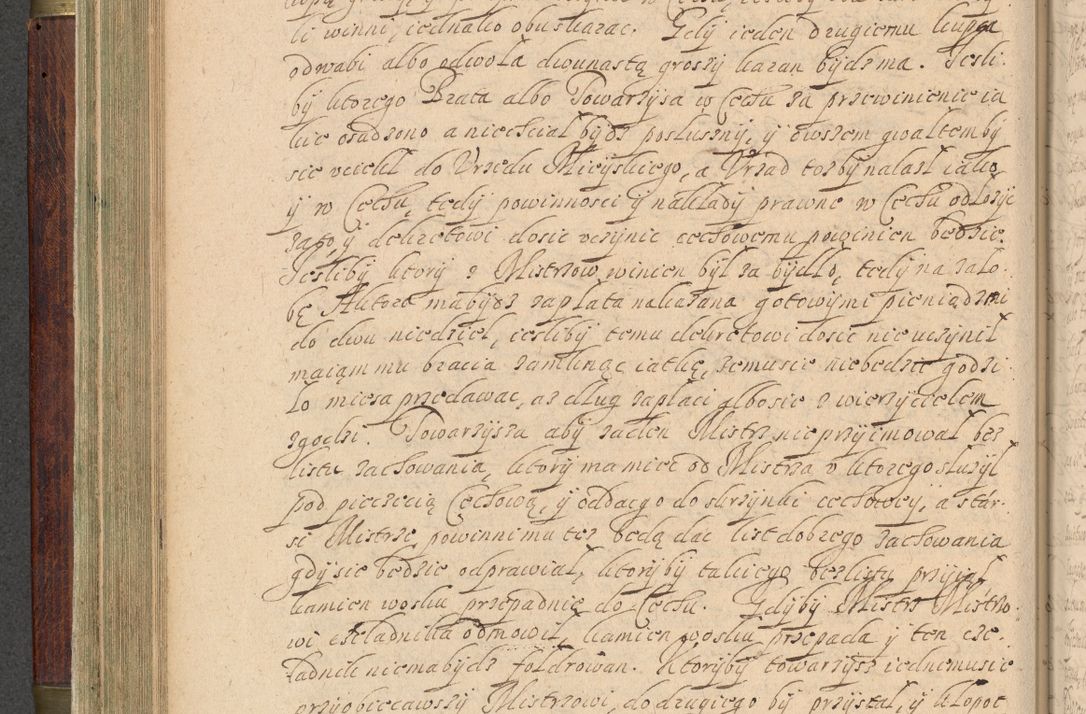 li winni, iednako obu skarac. Gdÿ ieden drugiemu kupca
odwabi albo odwoła dwunastą groszÿ karan bÿdz ma. Iesli
bÿ ktorego Brata albo Towarzÿsza w Cechu za przewinienie ia
kie osadzono a niechciał bÿdz posłusznÿ, ÿ owszem gwałtem bÿ
sie uciekł do Urzędu Mieÿskiego, a Urząd toż bÿ nalasł iako
ÿ w Cechu, tedÿ powinnosci ÿ nakładÿ prawne w Cechu odłożÿc
zato, ÿ dekretowi dosic uczÿnic cechowemu powinien będzie.
Iesliby ktorÿ z Mistrzow winien bÿł za bÿdło, tedÿ na zało
bę Aktora ma bÿdz zapłata nakazana gotowÿmi pieniądzmi
do dwu niedziel, iesliby temu dekretowi dosic nie uczÿnił
maią mu bracia zamknąc iatkę, że mu sie niebedzie godzi
ło miesa przedawac, aż dług zapłaci albo sie z wierzÿcielem
zgodzi. Towarzÿsza abÿ żaden Mistrz nie przÿimował bez
listu zachowania, ktorÿ ma miec od Mistrza u ktorego służÿł
pod pieczecią Cechową, ÿ oddac go do skrzÿnki cechoweÿ, a stár
si Mistrze, powinni mu też będą dac list dobrego zachowania
gdÿ sie będzie odprawiał, ktorÿ bÿ takiego bez listu przÿiął
kamien wosku przepadnie do Cechu. Gdÿbÿ Mistrz Mistrzo
wi czeladnika odmowił, kamien wosku przepada ÿ ten cze
ladnik niema bÿdz foldrowan. Ktorÿbÿ towarzÿsz iednemu sie
przÿobiecawszÿ Mistrzowi, do drugiego bÿ przÿstał, ÿ kłopot